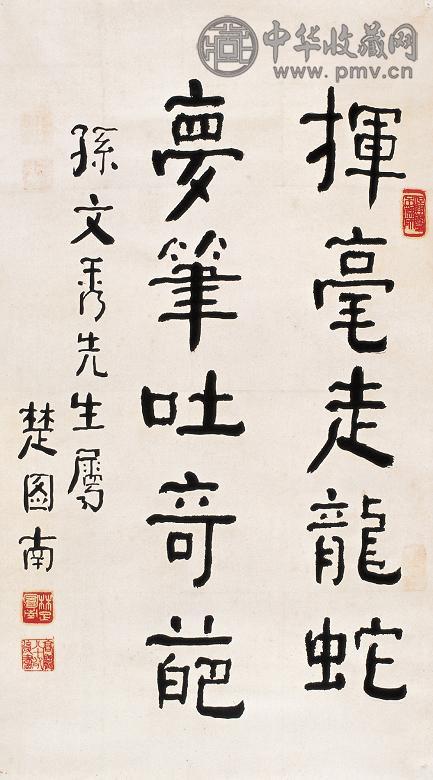 中华收藏网
www.pmv.cn
揮毫走龍蛇
夢筆吐奇葩
孫文秀先生屬
楚图南